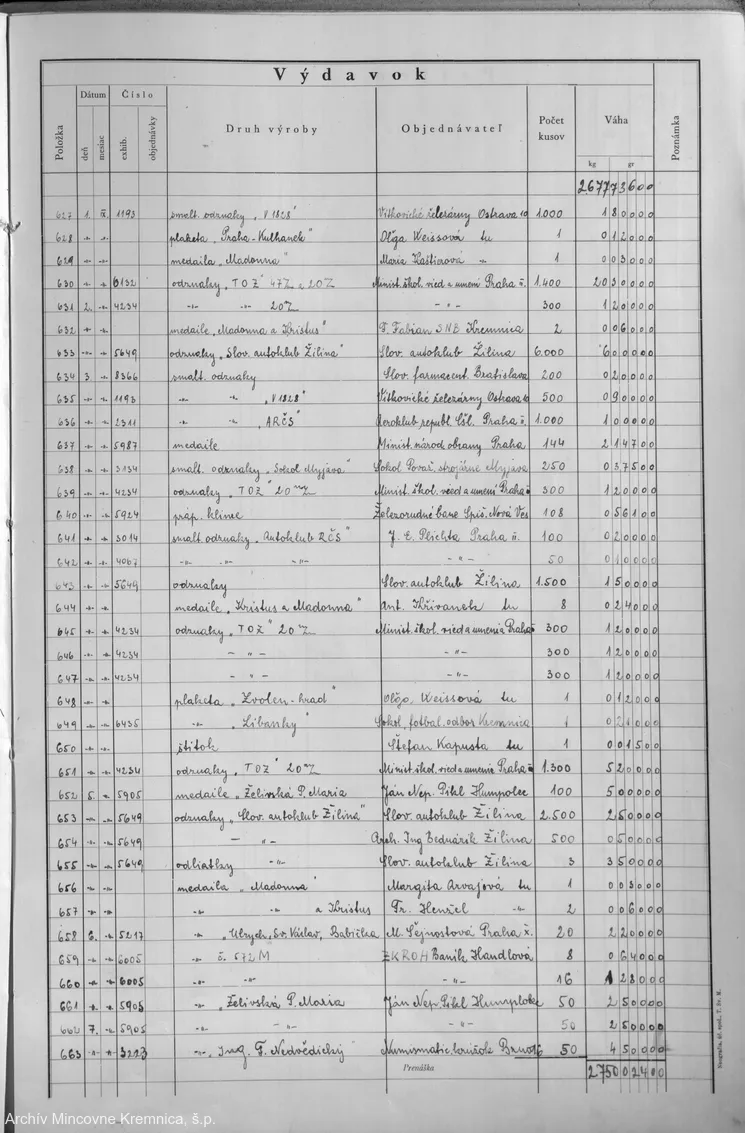 Výdavok
Položka | Dátum deň | mesiac | Číslo exhib. | objednávky | Druh výroby | Objednávateľ | Počet kusov | Váha kg gr | Poznámka
2677 73600
627 1. IX. 1193 smalt. odznaky „V 1828" Vítkovické železárny Ostrava 10 1.000 1 80000
628 -„- -„- plaketa „Praha-Kulhanek" Oľga Weissová tu 1 0 12000
629 -„- -„- medaila „Madonna" Maria -„- 1 0 03000
630 -„- -„- 6132 odznaky „TOZ" 47Z a 20Z Minist. škol. vied a umení Praha 1.400 20 30000
631 2. -„- 4234 -„- -„- 20Z -„- 300 1 20000
632 -„- -„- medaile „Madonna a Kristus" F. Fabian SNB Kremnica 2 0 06000
633 -„- -„- 5649 odznaky „Slov. autoklub Žilina" Slov. autoklub Žilina 6.000 6 00000
634 3. -„- 8366 smalt. odznaky Slov. farmaceut. Bratislava 200 0 20000
635 -„- -„- 1193 -„- -„- „V 1828" Vítkovické železárny Ostrava 10 500 0 90000
636 -„- -„- 2311 -„- -„- „ARČS" Aeroklub republ. Čsl. Praha II. 1.000 1 00000
637 -„- -„- 5987 medaile Minist. národ. obrany Praha 144 2 14700
638 -„- -„- 3134 smalt. odznaky „Sokol Myjava" Sokol Považ. strojárne Myjava 250 0 37500
639 -„- -„- 4234 odznaky „TOZ" 20 Z Minist. škol. vied a umení Praha 300 1 20000
640 -„- -„- 5924 práp. klince Železorudné bane Spiš. Nová Ves 108 0 56100
641 -„- -„- 3014 smalt. odznaky „Autoklub RČS" J. E. Plichta Praha II. 100 0 20000
642 -„- -„- 4067 -„- -„- -„- -„- 50 0 10000
643 -„- -„- 5649 odznaky Slov. autoklub Žilina 1.500 1 50000
644 -„- -„- medaile „Kristus a Madonna" Ant. Křivanek tu 8 0 24000
645 -„- -„- 4234 odznaky „TOZ" 20Z Minist. škol. vied a umenia Praha 300 1 20000
646 -„- -„- 4234 -„- -„- 300 1 20000
647 -„- -„- 4234 -„- -„- 300 1 20000
648 -„- -„- plaketa „Zvolen-hrad" Oľga Weissová tu 1 0 12000
649 -„- -„- 6435 -„- „Libanky" Sokol fotbal. odbor Kremnica 1 0 21000
650 -„- -„- štítok Štefan Kapusta tu 1 0 01500
651 -„- -„- 4234 odznaky „TOZ" 20 Z Minist. škol. vied a umenia Praha 1.300 5 20000
652 5. -„- 5905 medaile „Želivská P. Maria Ján Nep. Pikl Humpolec 100 5 00000
653 -„- -„- 5649 odznaky „Slov. autoklub Žilina" Slov. autoklub Žilina 2.500 2 50000
654 -„- -„- 5649 -„- Arch. Ing Bednárik Žilina 500 0 50000
655 -„- -„- 5649 odliatky -„- Slov. autoklub Žilina 3 3 50000
656 -„- -„- medaila „Madonna" Margita Arvajová tu 1 0 03000
657 -„- -„- -„- a Kristus Fr. Henžel -„- 2 0 06000
658 6. -„- 5217 -„- „Ulrych, Sv. Václav, Babička M. Šejnostová Praha X. 20 2 20000
659 -„- -„- 6005 -„- č. 572 M ZKROH Baník Handlová 8 0 64000
660 -„- -„- 6005 -„- -„- -„- 16 1 28000
661 -„- -„- 5905 -„- „Želivská P. Maria Ján Nep. Pikl Humpolec 50 2 50000
662 7. -„- 5905 -„- -„- -„- 50 2 50000
663 -„- -„- 3223 -„- „Ing. F. Nedvědický Numismatic. krúžok Brno 16 50 4 50000
Prenáška 2750 02400
Neografia, úč. spol., T. Sv. M.
Archív Mincovne Kremnica, š.p.